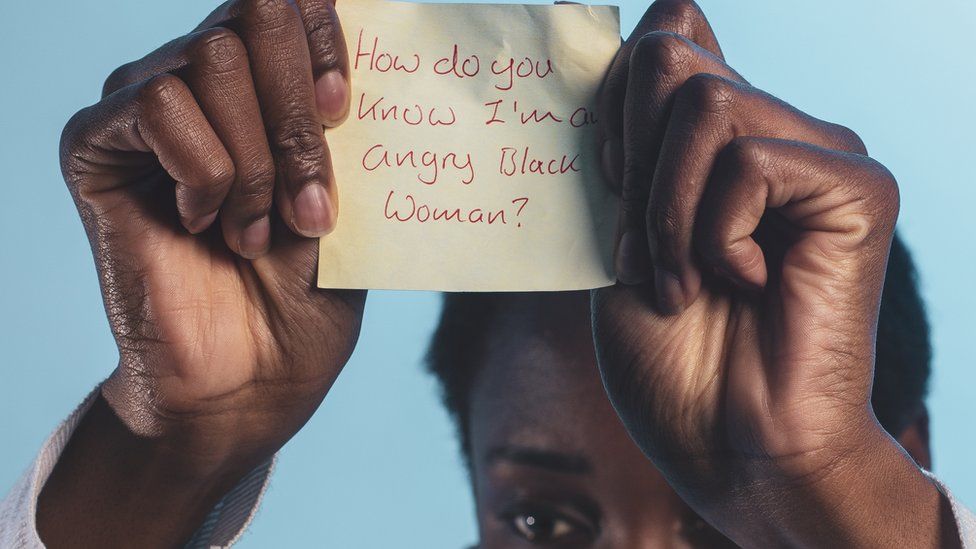 How do you
Know I'm an
angry Black
Woman?